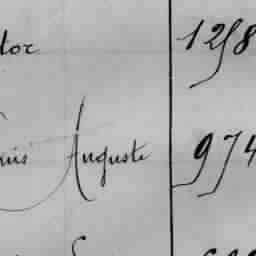 tor 1258
uis Auguste 974